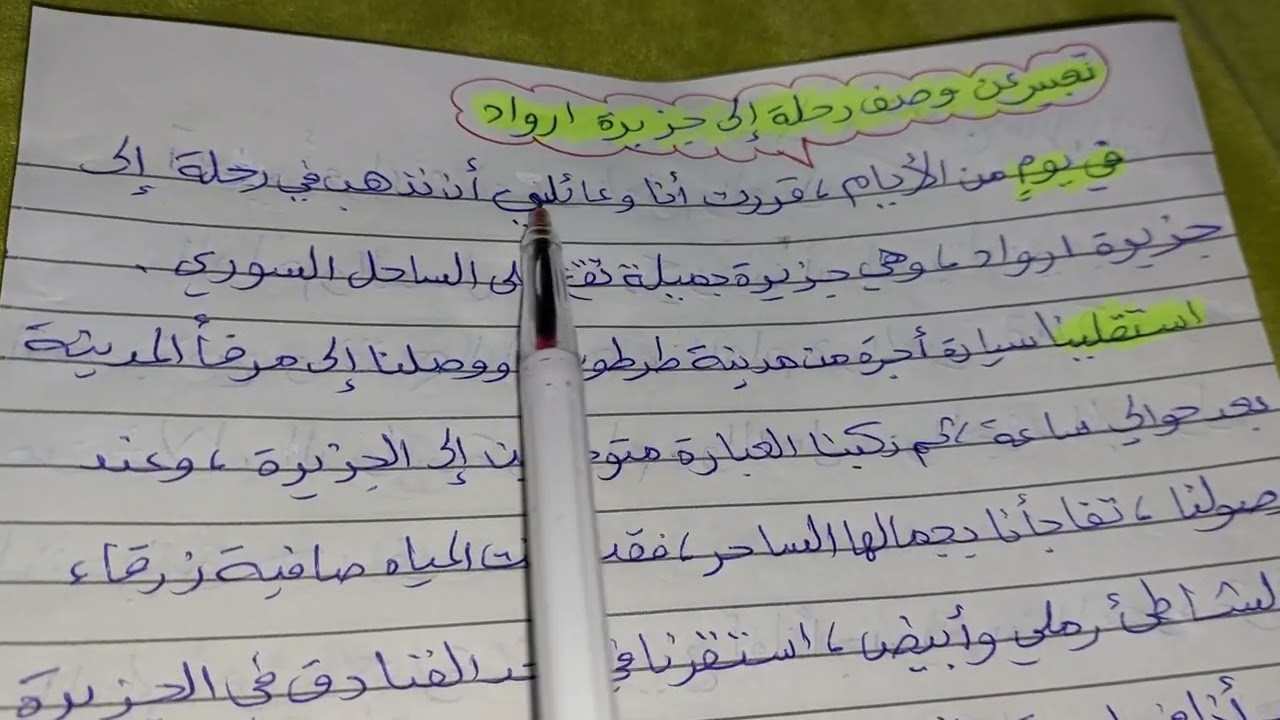 تعبير عن وصف رحلة إلى جزيرة ارواد
في يوم من الأيام ، قررت أنا وعائلتي أن نذهب في رحلة إلى
جزيرة ارواد ، وهي جزيرة جميلة تقع الساحل السوري .
استقلينا سيارة أجرة من مدينة ووصلنا إلى مرفأ المدينة
بعد حوالي ساعة ، ثم ركبنا العبارة إلى الجزيرة ، وعند
تفاجأنا بجمالها الساحر ، فقد المياه صافية زرقاء
رملي وأبيض ، استقرنا في الفنادق في الجزيرة